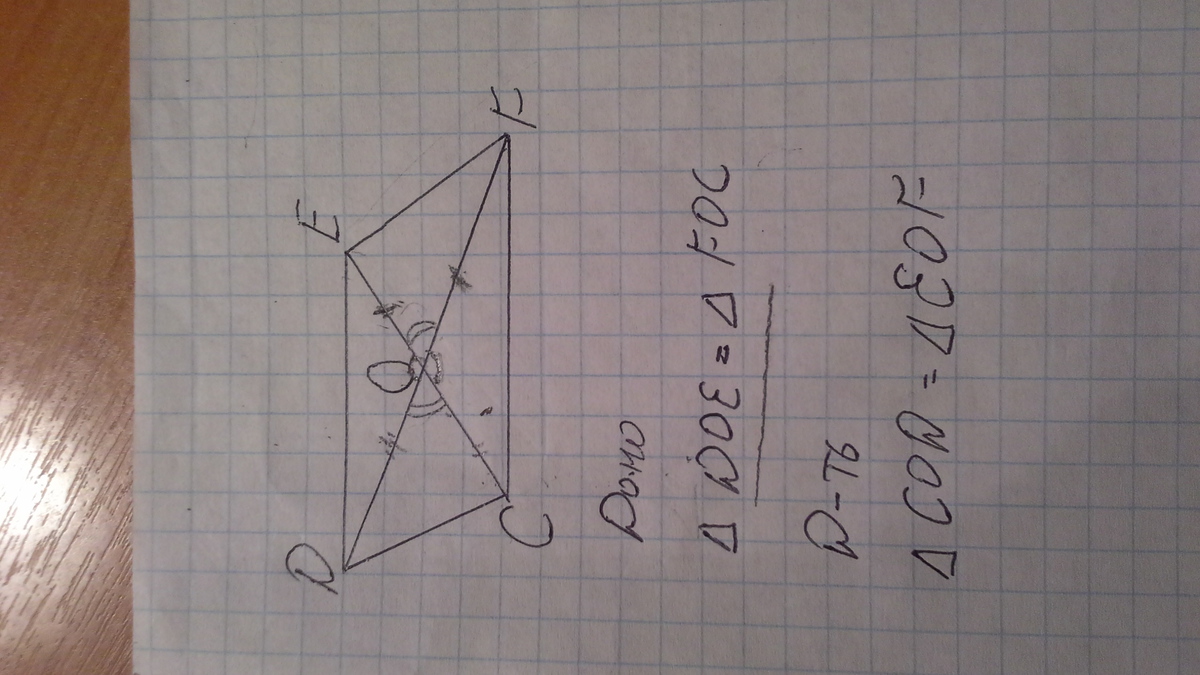 D
E
O
C
F
Дано
Δ DOE = Δ FOC
Д-ть
Δ COD = Δ EOF